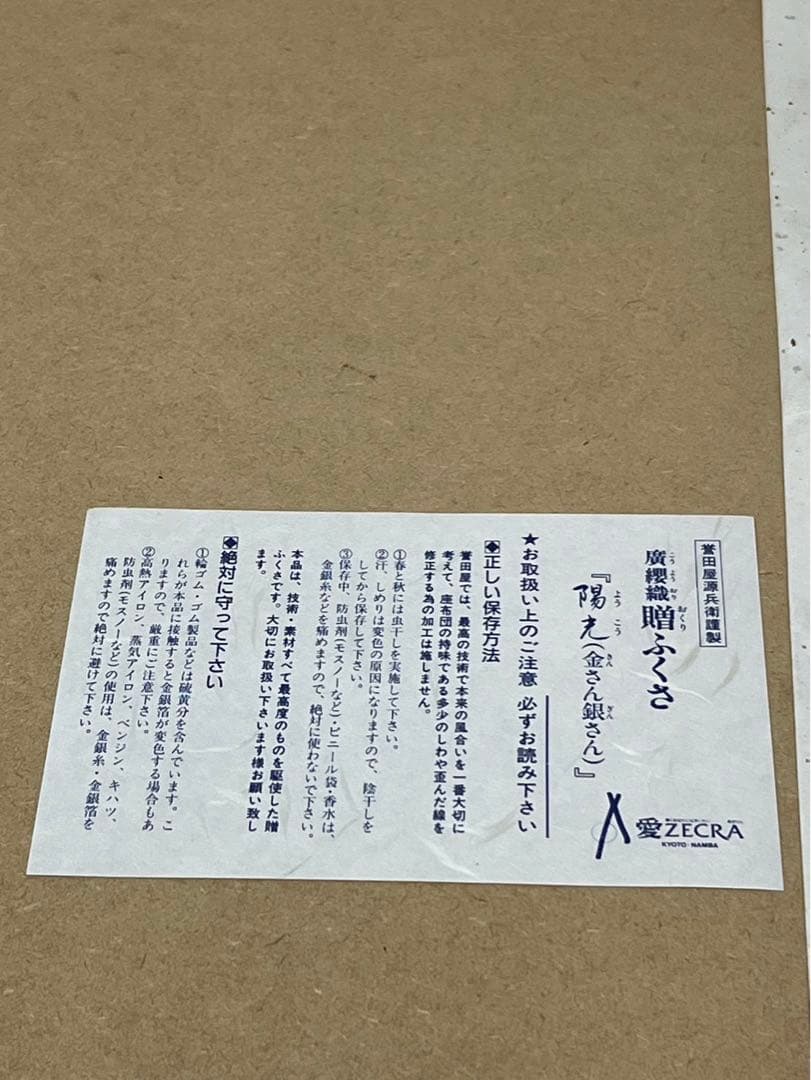 誉田屋源兵衛謹製
廣纓織贈ふくさ
こうようおり おくり
『陽光(金さん銀さん)』
ようこう きん ぎん
愛ZECRA
KYOTO・NAMBA
★お取扱い上のご注意 必ずお読み下さい
◆正しい保存方法
誉田屋では、最高の技術で本来の風合いを一番大切に
考えて、座布団の持味である多少のしわや歪んだ線を
修正する為の加工は施しません。
①春と秋には虫干しを実施して下さい。
②汗、しめりは変色の原因になりますので、陰干しを
してから保存して下さい。
③保存中、防虫剤(モスノーなど)・ビニール袋・香水は、
金銀糸などを痛めますので、絶対に使わないで下さい。
本品は、技術・素材すべて最高度のものを駆使した贈
ふくさです。大切にお取扱い下さいます様お願い致し
ます。
◆絶対に守って下さい
①輪ゴム・ゴム製品などは硫黄分を含んでいます。こ
れらが本品に接触すると金銀箔が変色する場合もあ
りますので、厳重にご注意下さい。
②高熱アイロン、蒸気アイロン、ベンジン、キハツ、
防虫剤(モスノーなど)の使用は、金銀糸・金銀箔を
痛めますので絶対に避けて下さい。